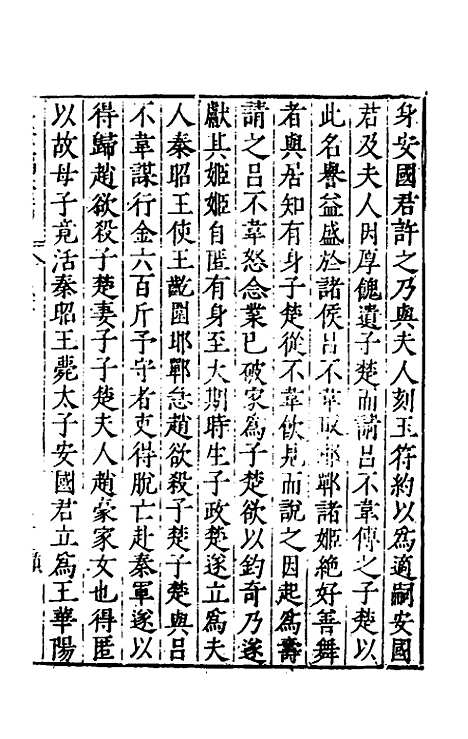 身安國君許之乃與夫人刻玉符約以爲適嗣安國
君及夫人因厚餽遺子楚而請呂不韋傅之子楚以
此名譽益盛於諸侯呂不韋取邯鄲諸姬絕好善舞
者與居知有身子楚從不韋飲見而說之因起爲壽
請之呂不韋怒念業已破家爲子楚欲以釣奇乃遂
獻其姬姬自匿有身至大期時生子政楚遂立爲夫
人秦昭王使王齮圍邯鄲急趙欲殺子楚子楚與呂
不韋謀行金六百斤予守者吏得脫亡赴秦軍遂以
得歸趙欲殺子楚妻子子楚夫人趙豪家女也得匿
以故母子竟活秦昭王薨太子安國君立爲王華陽